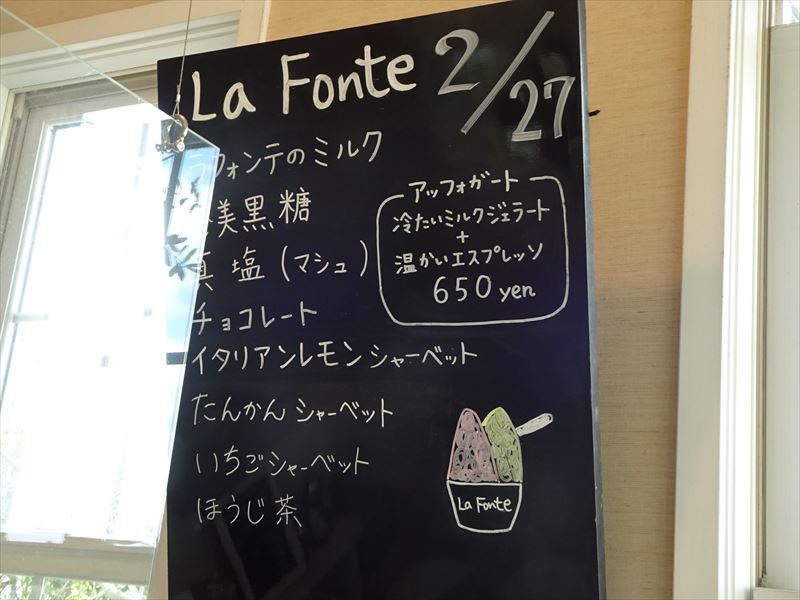 La Fonte 2/27
ラフォンテのミルク
美黒糖
真塩(マシュ)
チョコレート
イタリアンレモンシャーベット
たんかんシャーベット
いちごシャーベット
ほうじ茶
アッフォガート
冷たいミルクジェラート
+
温かいエスプレッソ
650 yen
La Fonte